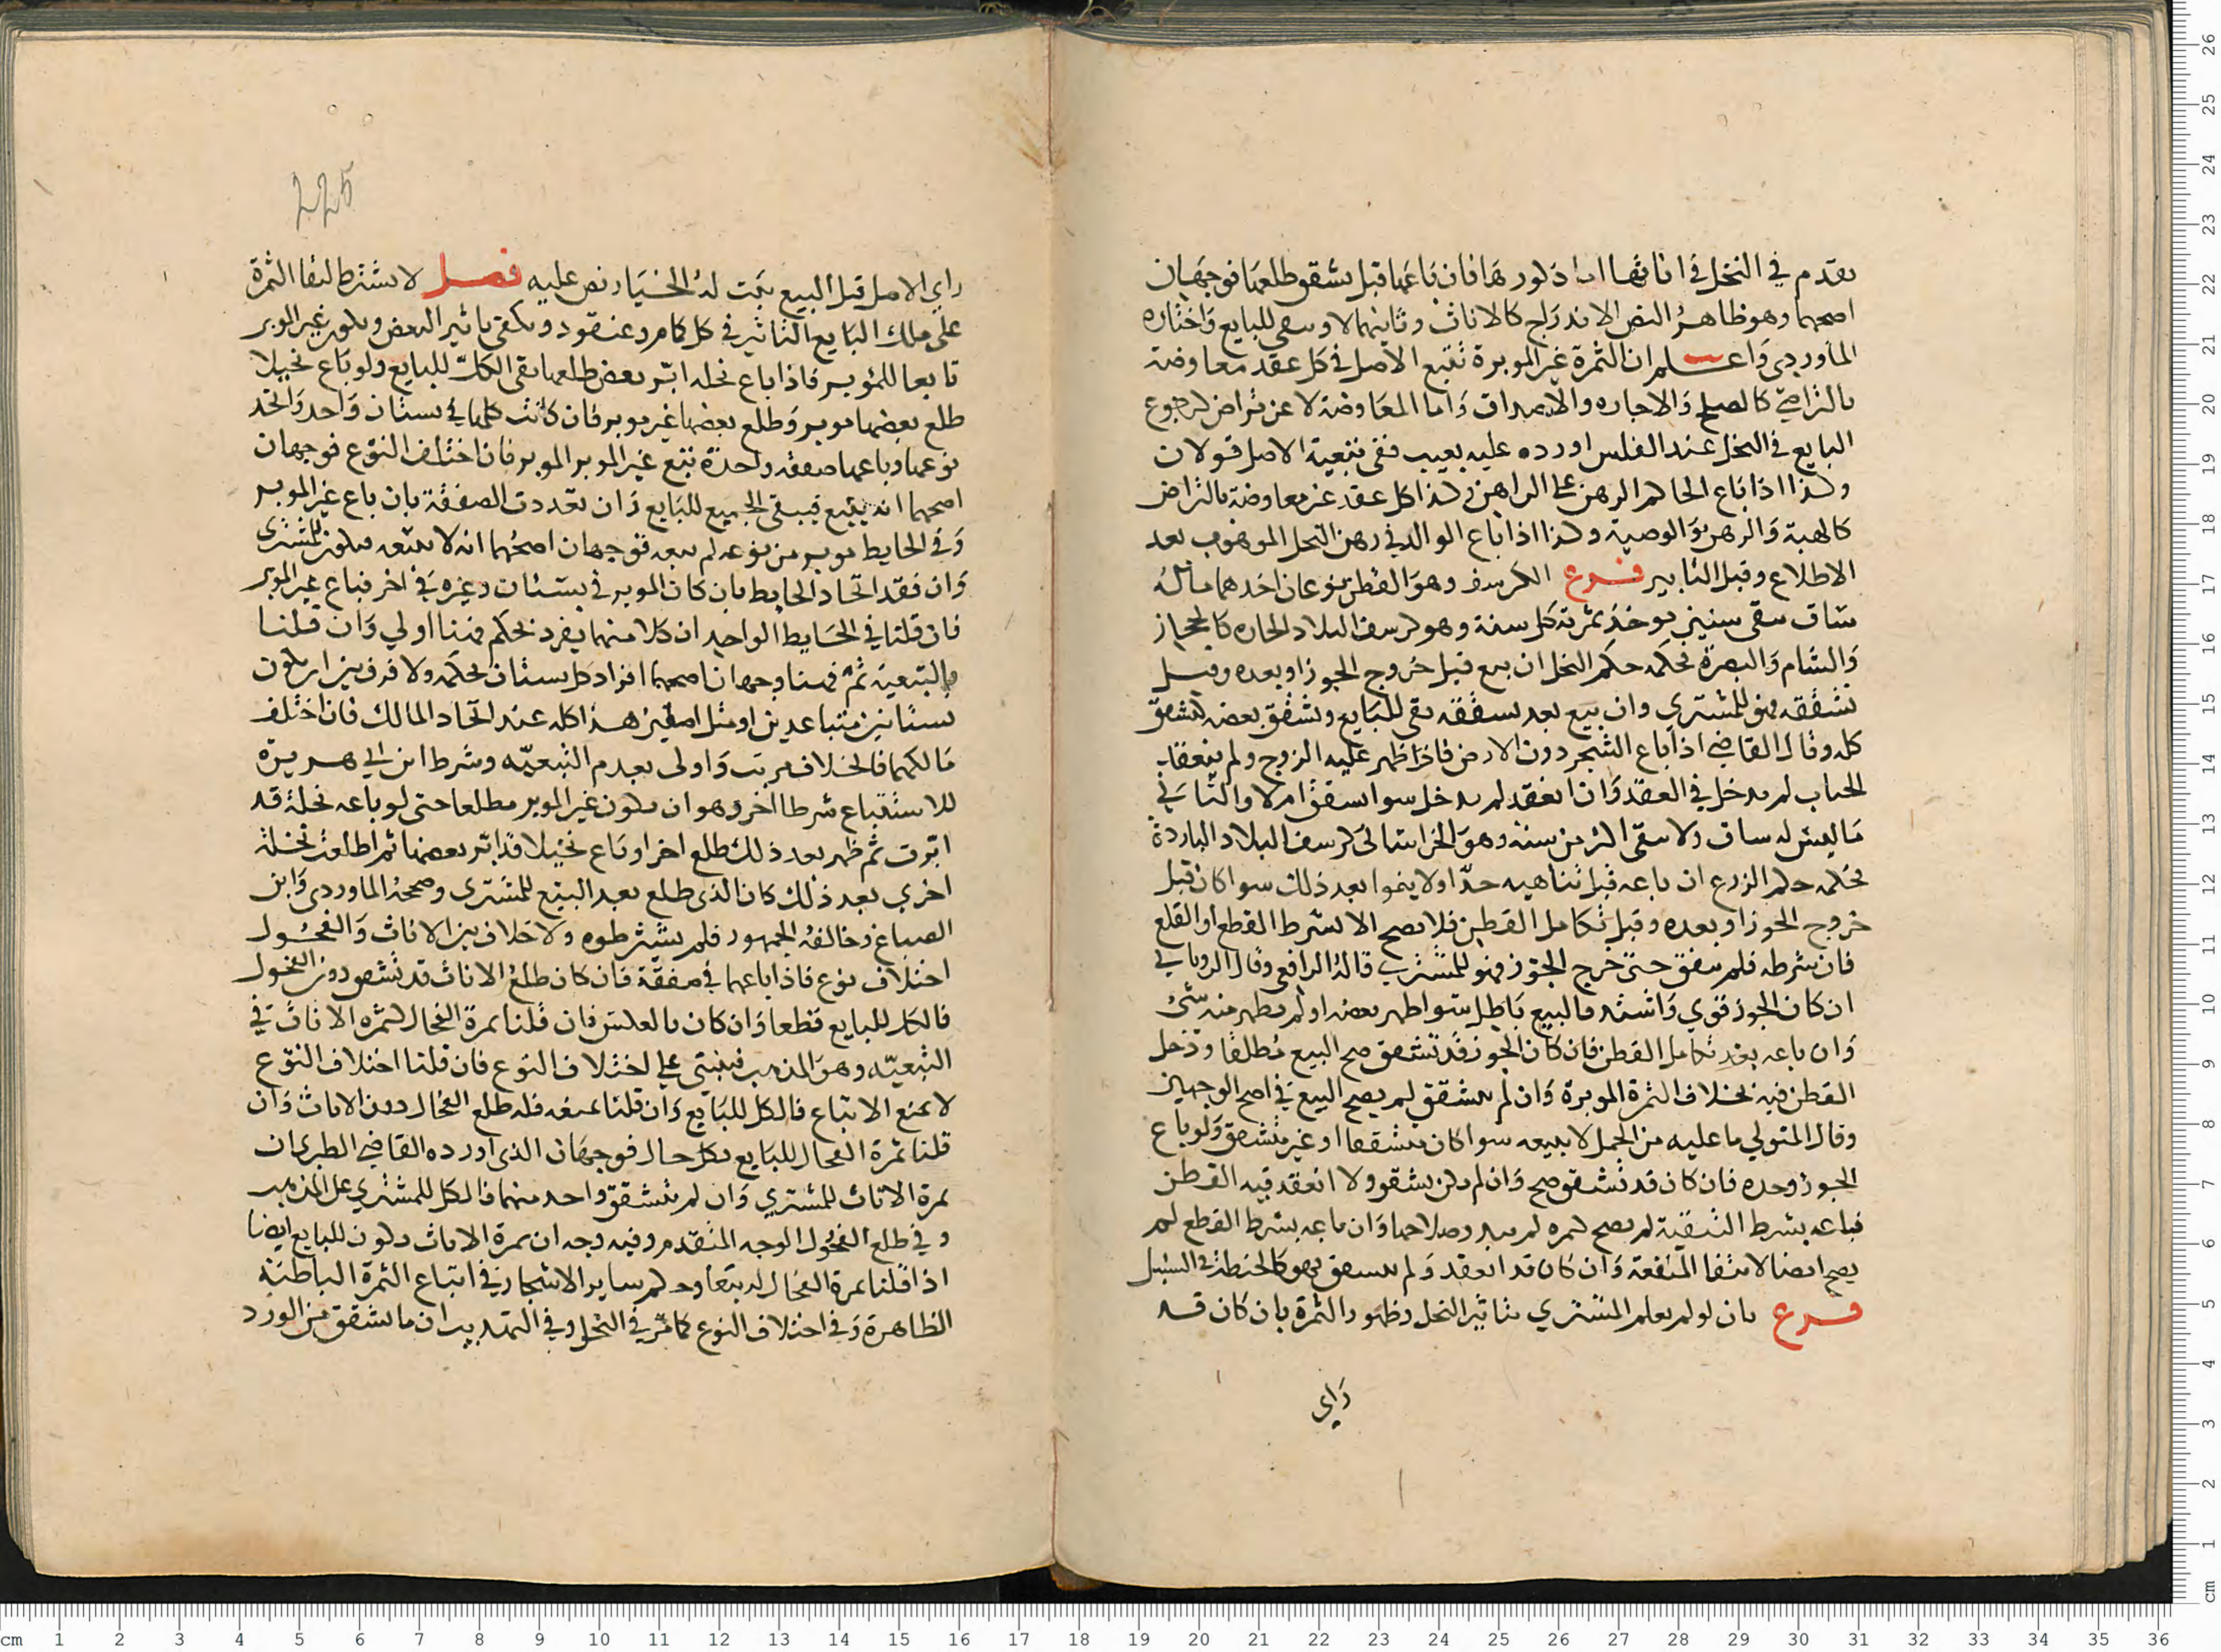 تقدم في النخل في اناثها اما ذكورها فان باعها قبل تشقق طلعها فوجهان
اصحهما وهو ظاهر النص الاندراج كالاناث وثانيهما لا ويبقى للبايع واختاره
الماوردي واعلم ان الثمرة غير الموبرة تتبع الاصل في كل عقد معاوضة
بالتراضي كالصلح والاجاره والاصداق واما المعاوضة لا عن تراض كرجوع
البايع في النخل عند الفلس او رده عليه بعيب ففي تبعية الاصل قولان
وكذا اذا باع الحاكم الرهن على الراهن وكذا كل عقد غير معاوضة بالتراض
كالهبة والرهن والوصية وكذا اذا باع الوالد في رهن النخل الموهوب بعد
الاطلاع وقبل التابير فرع الكرسف وهو القطن نوعان احدهما ماله
ساق يبقى سنين يوخذ ثمرته كل سنة وهو كرسف البلاد الحاره كالحجاز
والشام والبصرة فحكمه حكم النخل ان بيع قبل خروج الجوز او بعده وقبل
تشققه فهو للمشتري وان بيع بعد تشققه بقي للبايع وتشقق بعضه كتشقق
كله وقال القاضي اذا باع الشجر دون الارض فاذا ظهر عليه الزوج ولم ينعقد
الحباب لم يدخل في العقد وان انعقد لم يدخل سوا تشقق ام لا والثاني
ما ليس له ساق ولا يبقى اكثر من سنة وهو الخراساني كرسف البلاد الباردة
فحكمه حكم الزرع ان باعه قبل تناهيه حدا ولا ينموا بعد ذلك سوا كان قبل
خروج الجوز او بعده وقبل تكامل القطن فلا يصح الا بشرط القطع او القلع
فان شرطه فلم يتفق حتى خرج الجوز فهو للمشتري قاله الرافعي وقال الروياني
ان كان الجوز قوي واشتد فالبيع باطل سوا ظهر بعضه او لم يظهر منه شئ
وان باعه بعد تكامل القطن فان كان الجوز قد تشقق صح البيع مطلقا ودخل
القطن فيه بخلاف الثمرة الموبرة وان لم يتشقق لم يصح البيع في اصح الوجهين
وقال المتولي ما عليه من الحمل لا يبيعه سوا كان متشققا او غير متشقق ولو باع
الجوز وحده فان كان قد تشقق صح وان لم يكن تشقق ولا انعقد فيه القطن
فباعه بشرط التبقية لم يصح كثمرة لم يبد صلاحها وان باعه بشرط القطع لم
يصح ايضا لانتفا المنفعة وان كان قد انعقد ولم يتشقق فهو كالحنطة في السنبل
فرع بان لو لم يعلم المشتري بتابير النخل وظهور الثمرة بان كان قد
راي
225
راي الاصل قبل البيع ثبت له الخيار نص عليه فصل لا يشترط لبقا الثمرة
على ملك البايع التاثير في كل كمام وعنقود ويكفي تابير البعض ويكون غير الموبر
تابعا للموبر فاذا باع نخله ابر بعض طلعها بقي الكل للبايع ولو باع نخيلا
طلع بعضها موبر وطلع بعضها غير موبر فان كانت كلها في بستان واحد واتحد
نوعها وباعها صفقه واحدة تبع غير الموبر الموبر فان اختلف النوع فوجهان
اصحهما انه يتبع فيبقى الجميع للبايع وان تعددت الصفقة بان باع غير الموبر
وفي الحايط موبر من نوعه لم يبعه فوجهان اصحهما انه لا يتبعه فيكون للمشترى
وان فقد اتحاد الحايط بان كان الموبر في بستان وغيره في اخر فباع غير الموبر
فان قلنا في الحايط الواحد ان كلا منهما يفرد بحكم فهنا اولي وان قلنا
بالتبعية ثم فهنا وجهان اصحهما افراد كل بستان بحكمه ولا فرق بين ان يكون
بستانين متباعدين او متلاصقين هذا كله عند اتحاد المالك فان اختلف
مالكهما فالخلاف مرتب واولى بعدم التبعيه وشرط ابن ابي هريرة
للاستتباع شرطا اخر وهو ان يكون غير الموبر مطلعا حتى لو باعه نخلة قد
ابرت ثم ظهر بعد ذلك طلع اخر او باع نخيلا قد ابر بعضها ثم اطلعت نخلة
اخري بعد ذلك كان الذي طلع بعد البيع للمشتري وصححه الماوردي وابن
الصباغ وخالفه الجمهور فلم يشترطوه ولا خلاف بين الاناث والفحول
اختلاف نوع فاذا باعهما في صفقة فان كان طلع الاناث قد تشقق دون الفحول
فالكل للبايع قطعا وان كان بالعكس فان قلنا ثمرة الفحال كثمره الاناث في
التبعيه وهو المذهب فينبني على اختلاف النوع فان قلنا اختلاف النوع
لا يمنع الاتباع فالكل للبايع وان قلنا يمنعه فله طلع الفحال دون الاناث وان
قلنا ثمرة الفحال للبايع بكل حال فوجهان الذي اورده القاضي الطبري ان
ثمرة الاناث للمشتري وان لم يتشقق واحد منهما فالكل للمشتري على المذهب
وفي طلع الفحول الوجه المتقدم وفيه وجه ان ثمرة الاناث تكون للبايع ايضا
اذا قلنا ثمرة الفحال له تبعا وحكم ساير الاشجار في اتباع الثمرة الباطنة
الظاهرة وفي اختلاف النوع كما مر في النخل وفي التهذيب ان ما تشقق من الورد